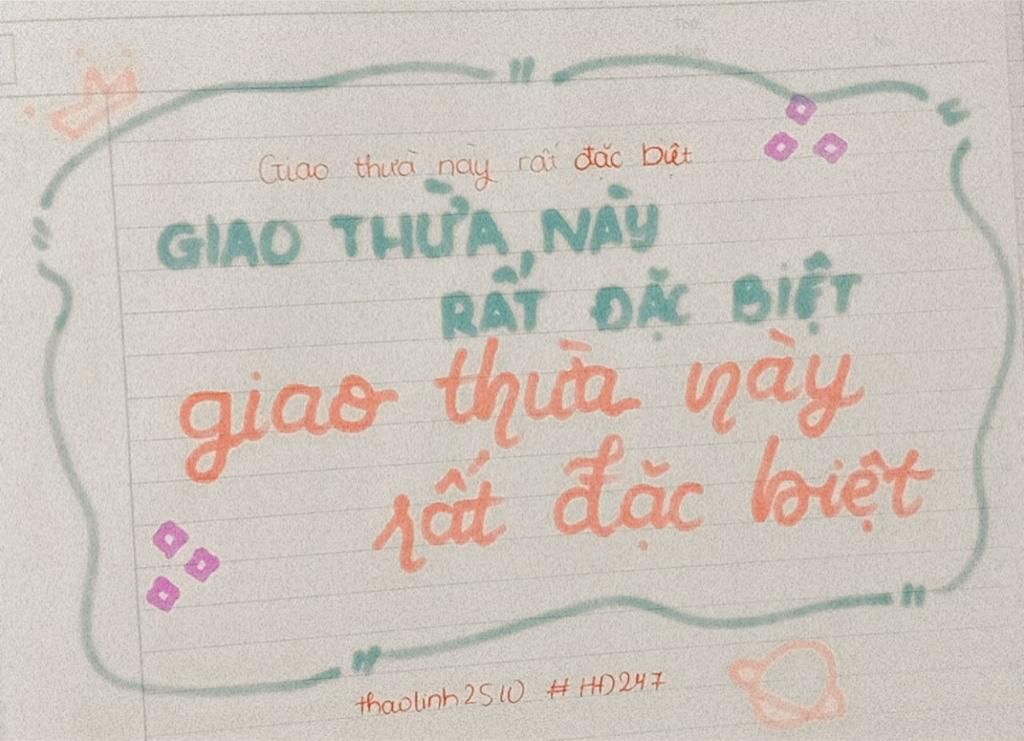 Giao thừa này rất đặc biệt
GIAO THỪA NÀY
RẤT ĐẶC BIỆT
giao thừa này
rất đặc biệt
thaolinh2510 #HD247